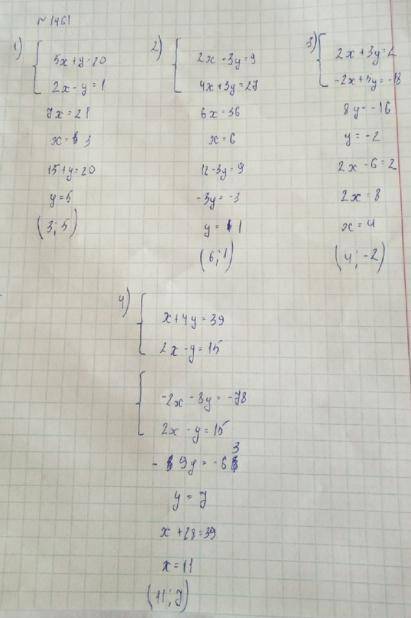 № 1461
1)
5x+y=20
2x-y=1
7x=21
x=3
15+y=20
y=5
(3;5)
2)
2x-3y=9
4x+3y=27
6x=36
x=6
12-3y=9
-3y=-3
y=1
(6;1)
3)
2x+3y=2
-2x+5y=-18
8y=-16
y=-2
2x-6=2
2x=8
x=4
(4;-2)
4)
x+4y=39
2x-y=15
-2x-8y=-78
2x-y=15
-9y=-63
y=7
x+28=39
x=11
(11;7)